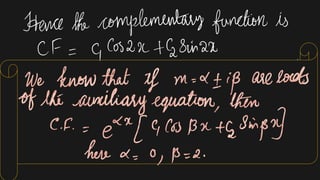 Hence the complementary function is
C F = C₁ Cos 2x + C₂ Sin 2x
We know that if m = α ± iβ are roots
of the auxiliary equation, then
C.F. = e^αx [ C₁ Cos βx + C₂ Sin βx ]
here α = 0, β = 2.